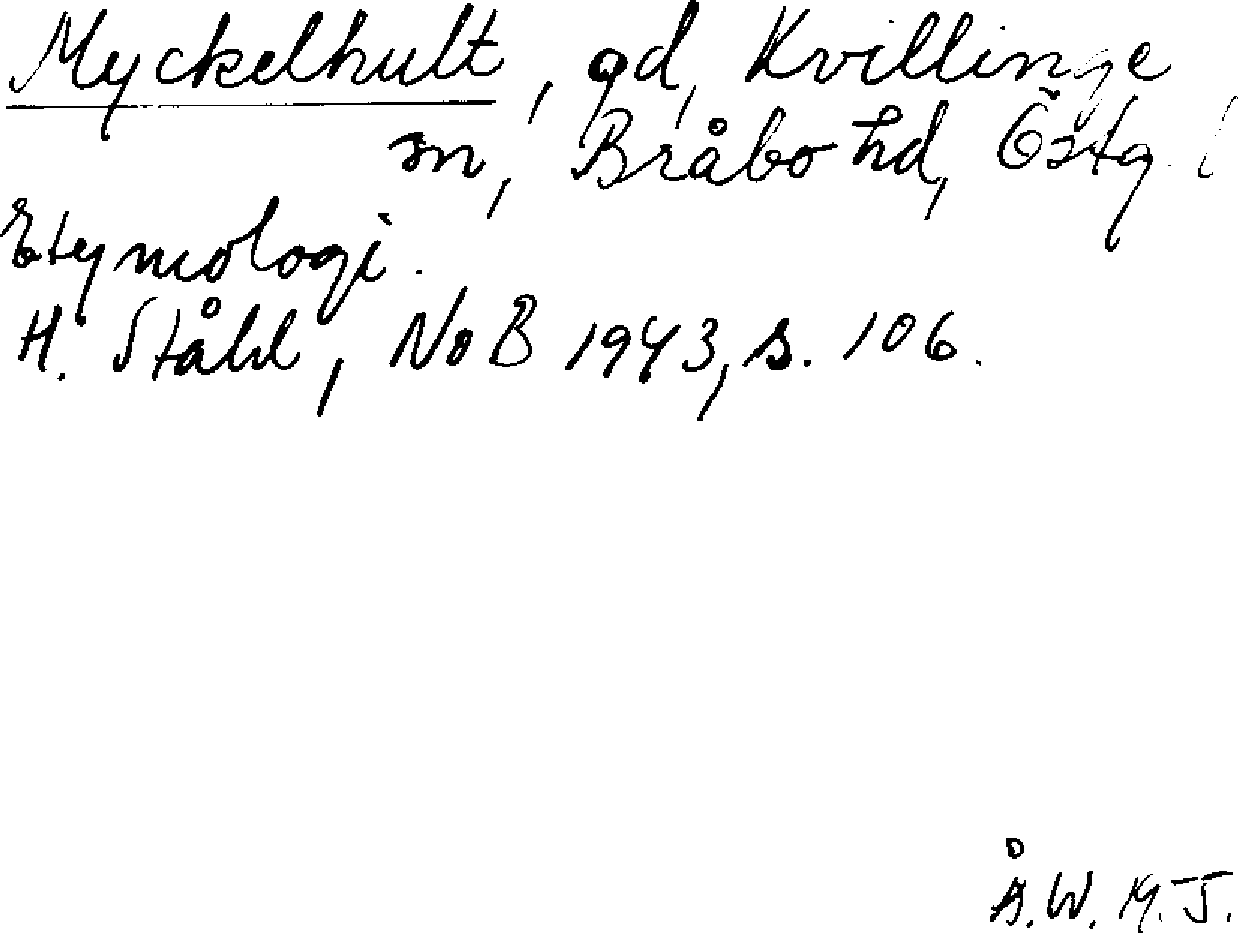 Myckelhult, gd, Kvillinge
sn, Bråbo hd, Östg. l
Etymologi.
H. Ståhl, NoB 1943, s. 106.
Å.W. M.J.